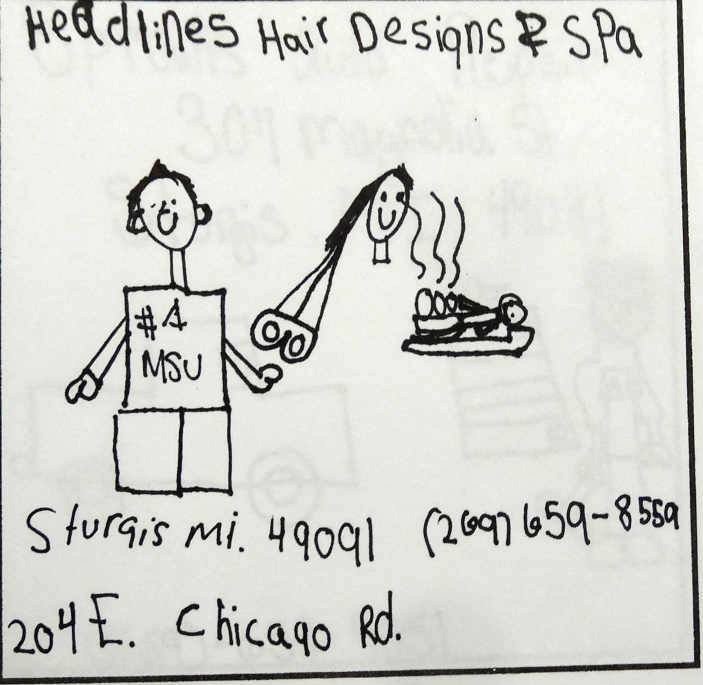 Headlines Hair Designs & Spa
#1
MSU
Sturgis mi. 49091 (269) 659-8559
204 E. Chicago Rd.